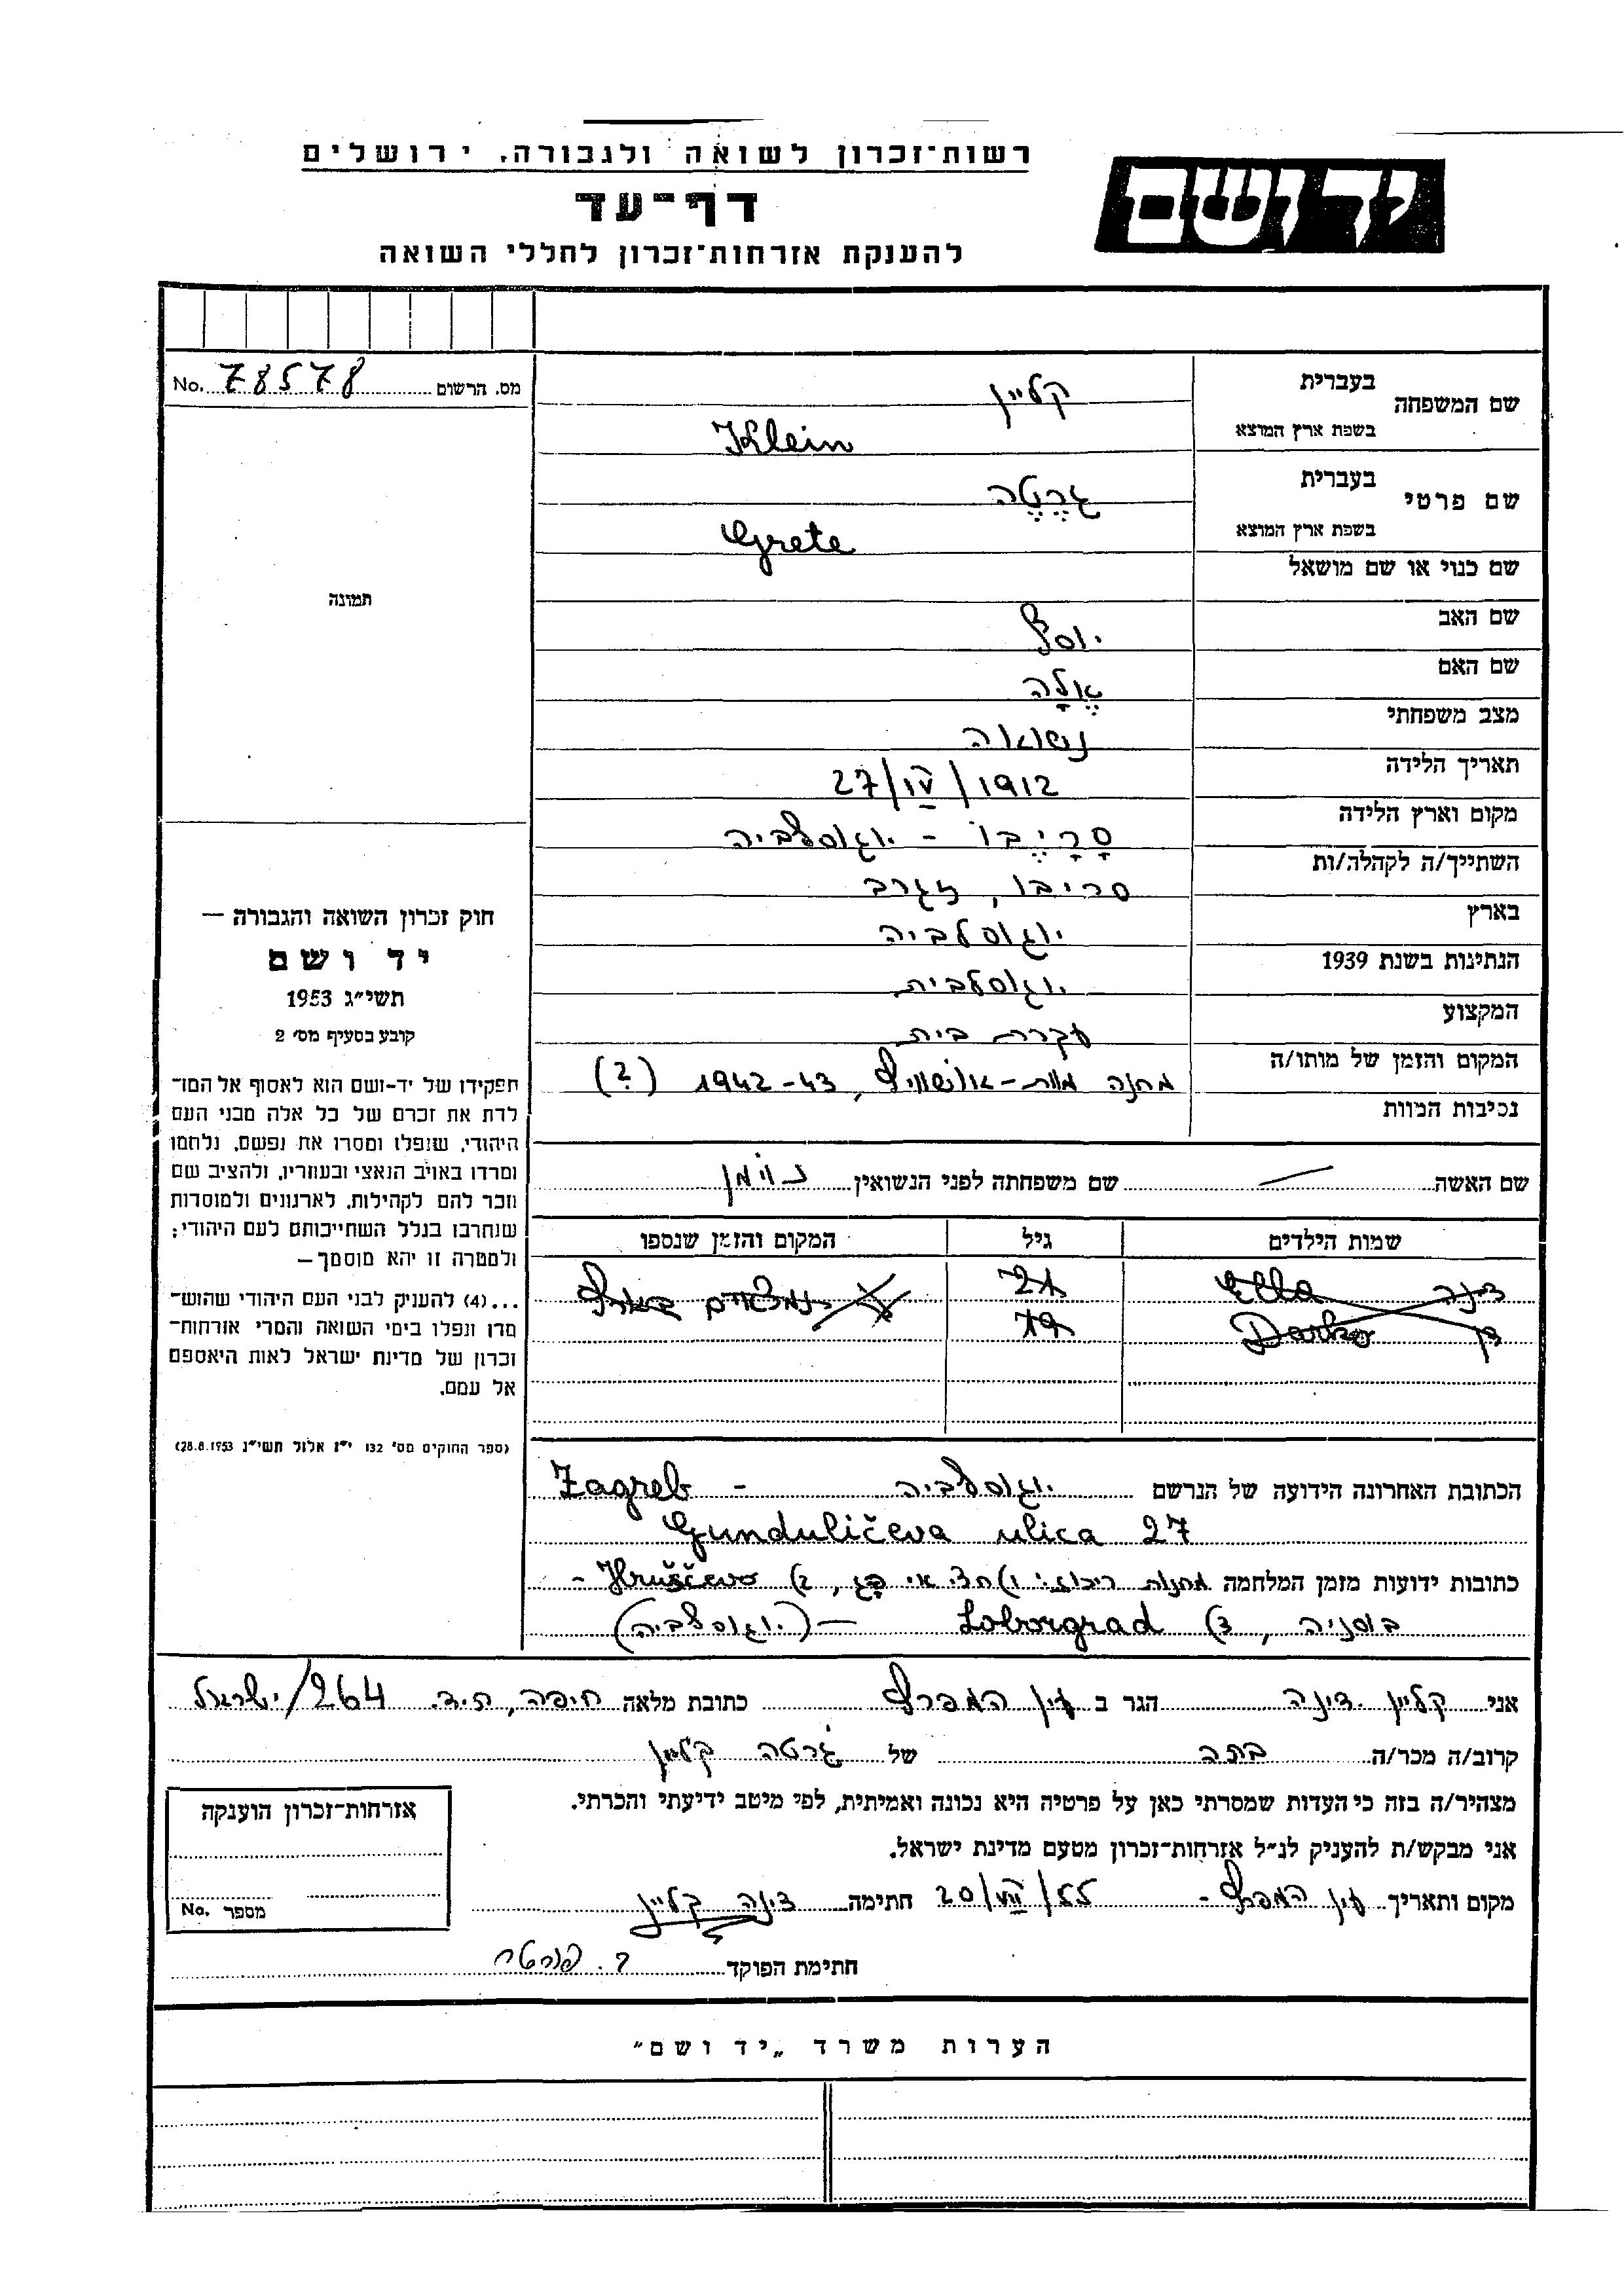 רשות־זכרון לשואה ולגבורה. ירושלים
יד ושם
דף־עד
להענקת אזרחות־זכרון לחללי השואה
מס. הרשום No. 78578
שם המשפחה בעברית קליין
בשפת ארץ המוצא Klein
שם פרטי בעברית גרֶטֶה
בשפת ארץ המוצא Grete
שם כנוי או שם מושאל
שם האב יוסף
שם האם אֶלָה
מצב משפחתי נשואה
תאריך הלידה 27/IV/1912
מקום וארץ הלידה סָרָיֶבוֹ - יוגוסלביה
השתייך/ה לקהלה/ות סריבו, זגרב
בארץ יוגוסלביה
הנתינות בשנת 1939 יוגוסלבית
המקצוע עקרת בית
המקום והזמן של מותו/ה מחנה מוות - אושוויץ, 1942-43 (?)
נסיבות המוות
שם האשה שם משפחתה לפני הנשואין נוימן
שמות הילדים גיל המקום והזמן שנספו
דינה Ella 21 נמצאים בארץ
דן Darko 19
הכתובת האחרונה הידועה של הנרשם יוגוסלביה - Zagreb
Gundulićeva ulica 27
כתובות ידועות מזמן המלחמה מחנות ריכוז: 2) Hruščevo -
בוסניה, 3) Loborgrad - (יוגוסלביה)
תמונה
חוק זכרון השואה והגבורה —
יד ושם
תשי"ג 1953
קובע בסעיף מס' 2
תפקידו של יד-ושם הוא לאסוף אל המו־
לדת את זכרם של כל אלה מבני העם
היהודי, שנפלו ומסרו את נפשם, נלחמו
ומרדו באויב הנאצי ובעוזריו, ולהציב שם
וזכר להם לקהילות, לארגונים ולמוסדות
שנחרבו בגלל השתייכותם לעם היהודי;
ולמטרה זו יהא מוסמך —
...(4) להעניק לבני העם היהודי שהוש־
מדו ונפלו בימי השואה והמרי אזרחות־
זכרון של מדינת ישראל לאות היאספם
אל עמם.
(ספר החוקים מס' 132 י"ז אלול תשי"ג 28.8.1953)
אני קליין דינה הגר ב עין המפרץ כתובת מלאה חיפה, ת.ד. 264/ישראל
קרוב/ה מכר/ה בתה של גרטה קליין
מצהיר/ה בזה כי העדות שמסרתי כאן על פרטיה היא נכונה ואמיתית, לפי מיטב ידיעתי והכרתי.
אני מבקש/ת להעניק לנ"ל אזרחות־זכרון מטעם מדינת ישראל.
מקום ותאריך עין המפרץ - 20/VII/55 חתימה דינה קליין
חתימת הפוקד
אזרחות־זכרון הוענקה
מספר No.
הערות משרד „יד ושם"